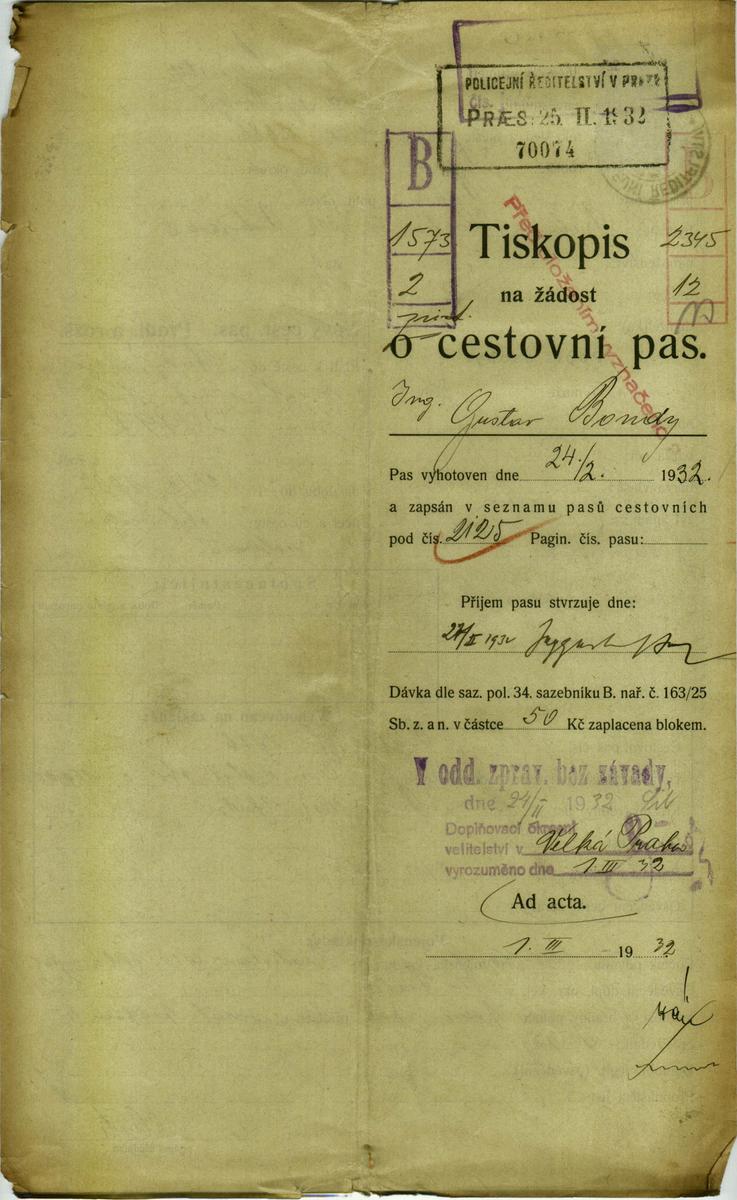 POLICEJNÍ ŘEDITELSTVÍ V PRAZE
PRÆS. 25. II. 1932
70074
B
1573
2
2345
12
Tiskopis
na žádost
o cestovní pas.
Předložením vyznačeno
Ing. Gustav Bondy
Pas vyhotoven dne 24./2. 1932.
a zapsán v seznamu pasů cestovních
pod čís. 2125 Pagin. čís. pasu:
Příjem pasu stvrzuje dne:
27/II 1932
Dávka dle saz. pol. 34. sazebníku B. nař. č. 163/25
Sb. z. a n. v částce 50 Kč zaplacena blokem.
V odd. zprav. bez závady,
dne 24/II 1932
Doplňovací okresní
velitelství v Velká Praha
vyrozuměno dne 1. III 32
Ad acta.
1. III 1932